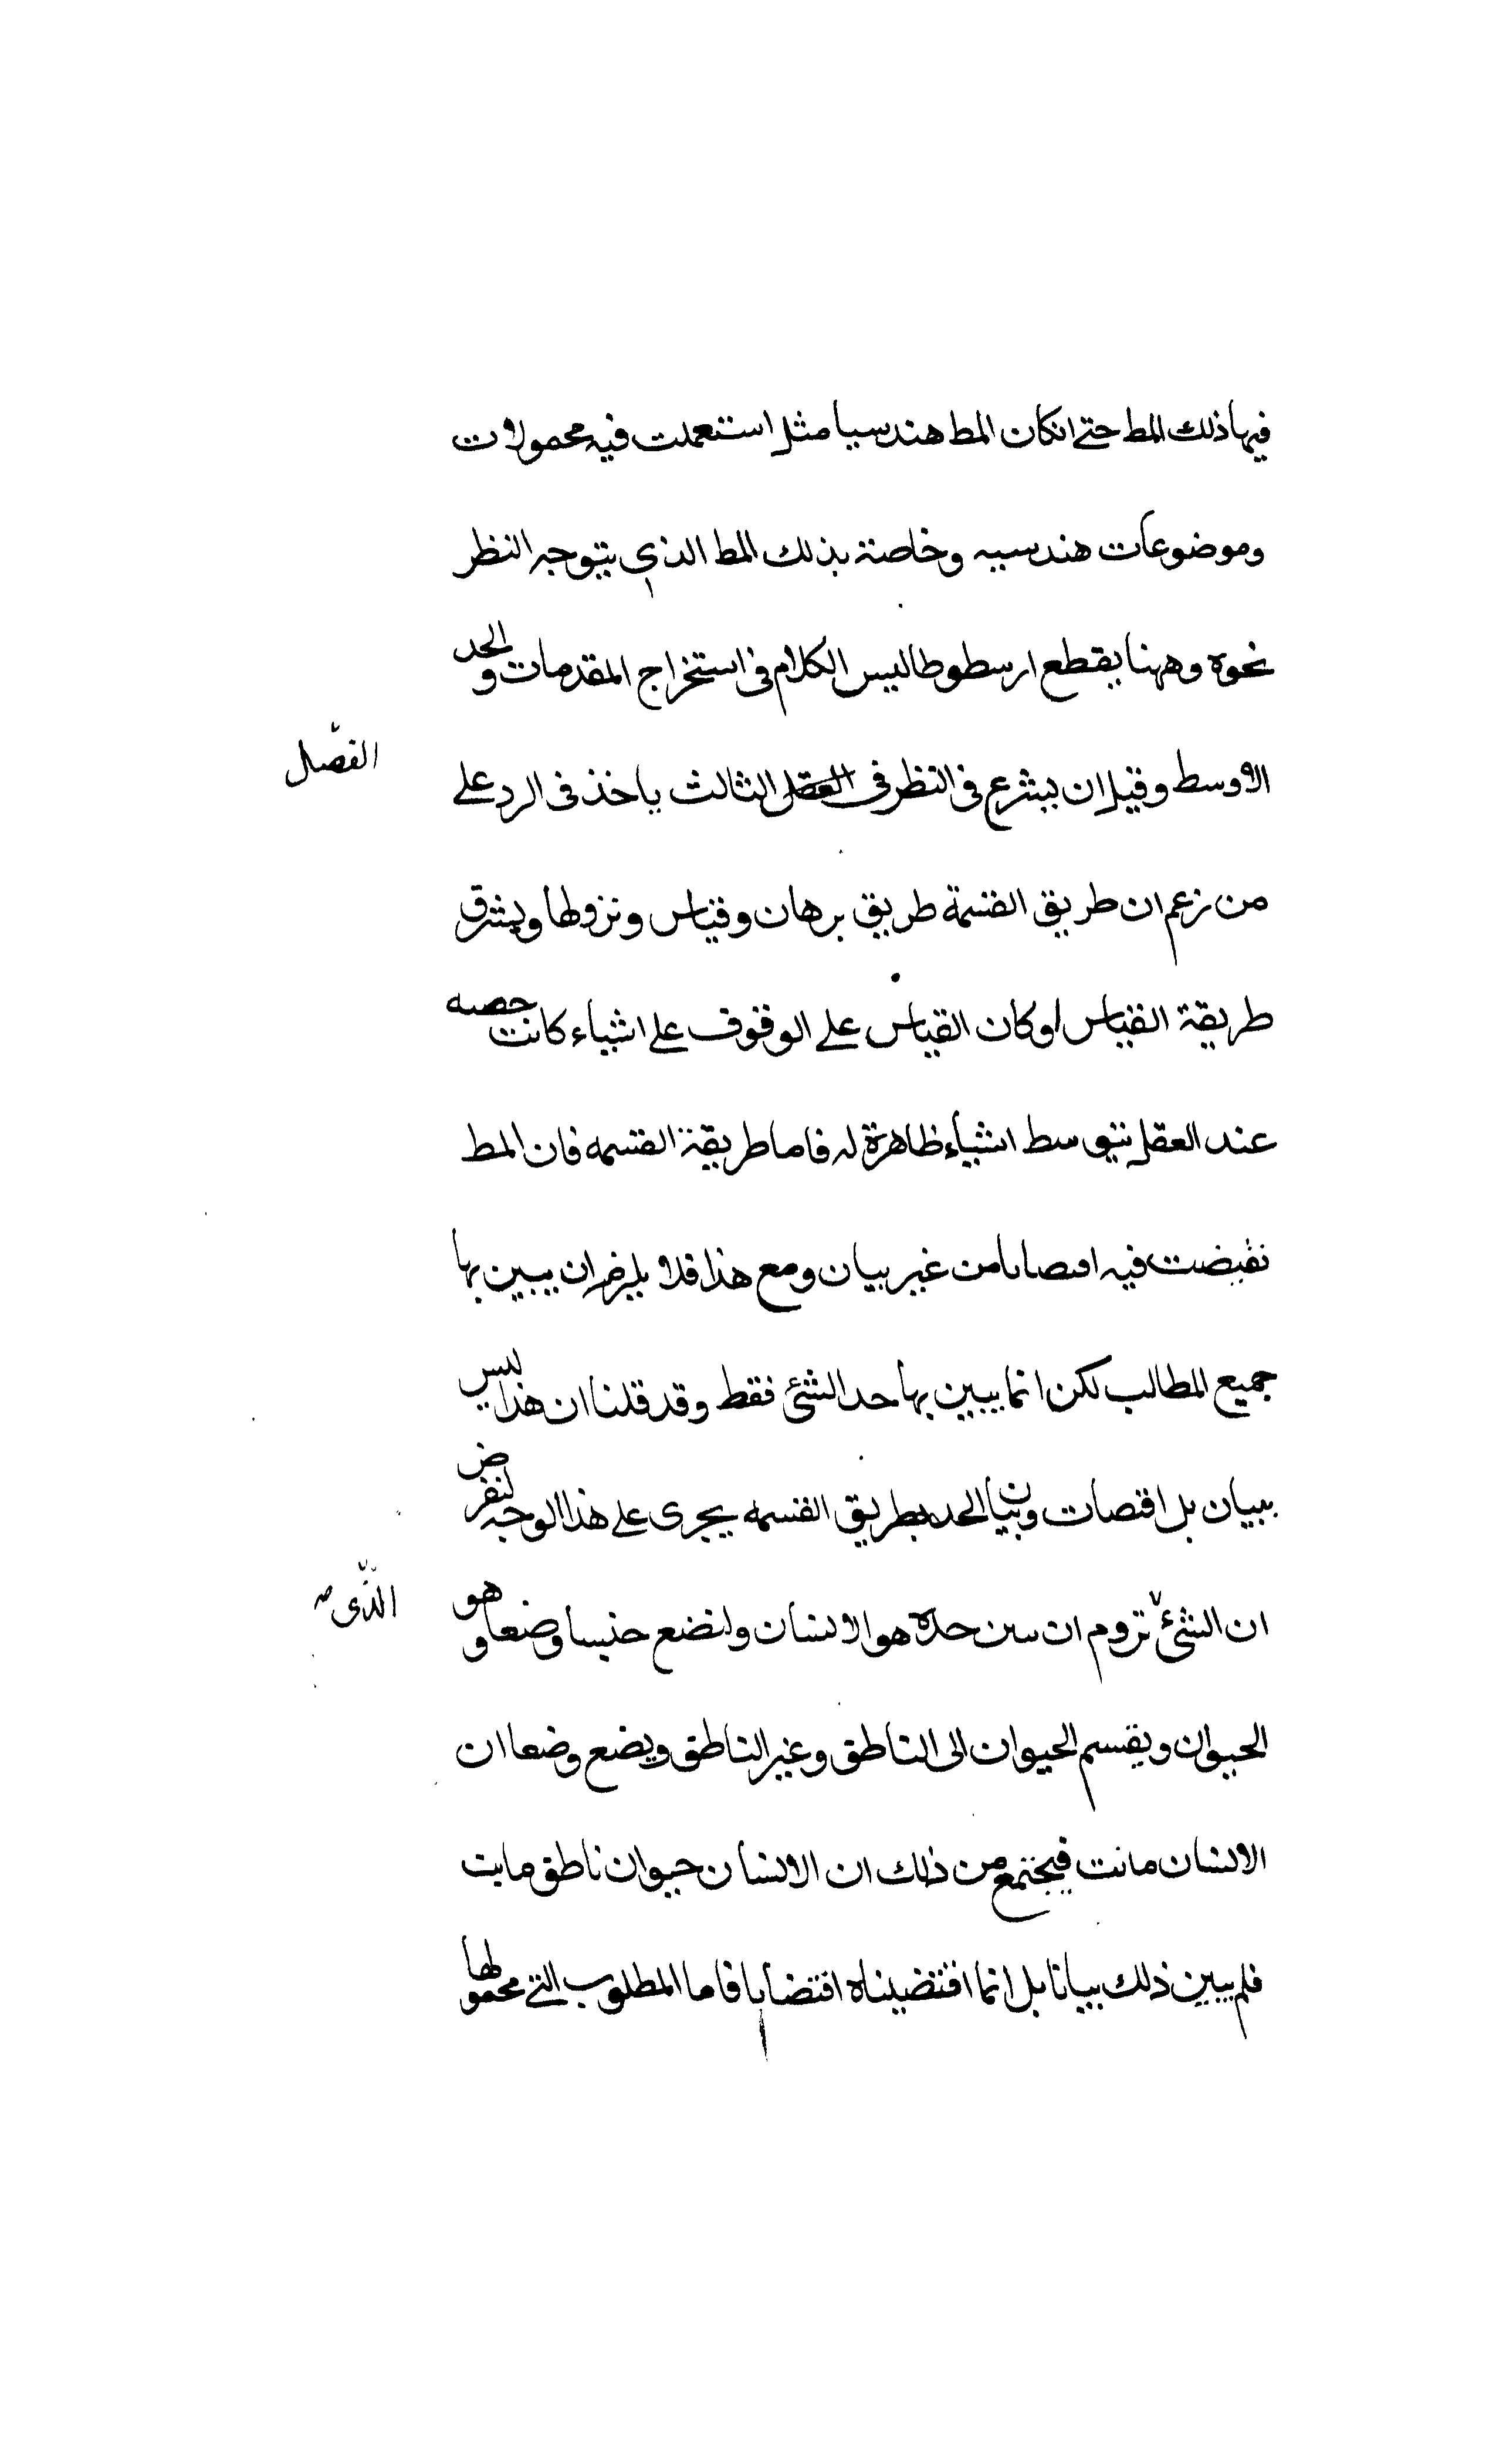 فيها ذلك المط حتے انكان المط هندسيا مثل استعملت فيه محمولات
وموضوعات هندسيه وخاصة بذلك المط الذى يتوجه النظر
نحوه وههنا يقطع ارسطوطاليس الكلام فى استخراج المقدمات والحد
الاوسط وقبل ان يشرع فى النظر فى العقل الثالث ياخذ فى الرد على
الفصل
من زعم ان طريق القسمة طريق برهان وقياس ويشرق
طريقة القياس اوكان القياس على الوقوف على اشياء كانت
عند العقل بتوسط اشياء ظاهرة له فاما طريقة القسمه فان المط
فيه من غير بيان ومع هذا فلا ان يبين بها
جميع المطالب لكن انما يبين بها حد الشئ فقط وقد قلنا ان هذا ليس
ببيان بل اقتصات وبيان الحد بطريق القسمه يجرى على هذا الوجه لنفرض
ان الشئ نروم ان سن حده هو الانسان ولنضع جنسا وضعا وهو
الذى
الحيوان ويقسم الحيوان الى الناطق وغير الناطق ويضع وضعا ان
الانسان مائت فيجتمع من ذلك ان الانسان حيوان ناطق مايت
فلم يبين ذلك بيانا بل انما اقتضيناه اقتضابا فاما المطلوب التے محمولها